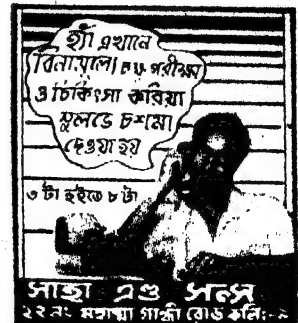 হ্যাঁ এখানে
বিনামূল্যে চক্ষু পরীক্ষা
ও চিকিৎসা করিয়া
সুলভে চশমা
দেওয়া হয়
৩ টা হইতে ৮ টা
সাহা এণ্ড সন্স
২২ নং মহাত্মা গান্ধী রোড কলিঃ-৯